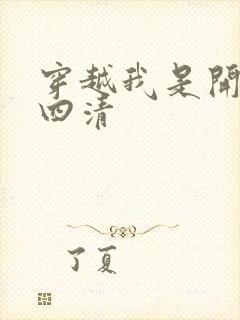 穿越我是開
四清
了夏